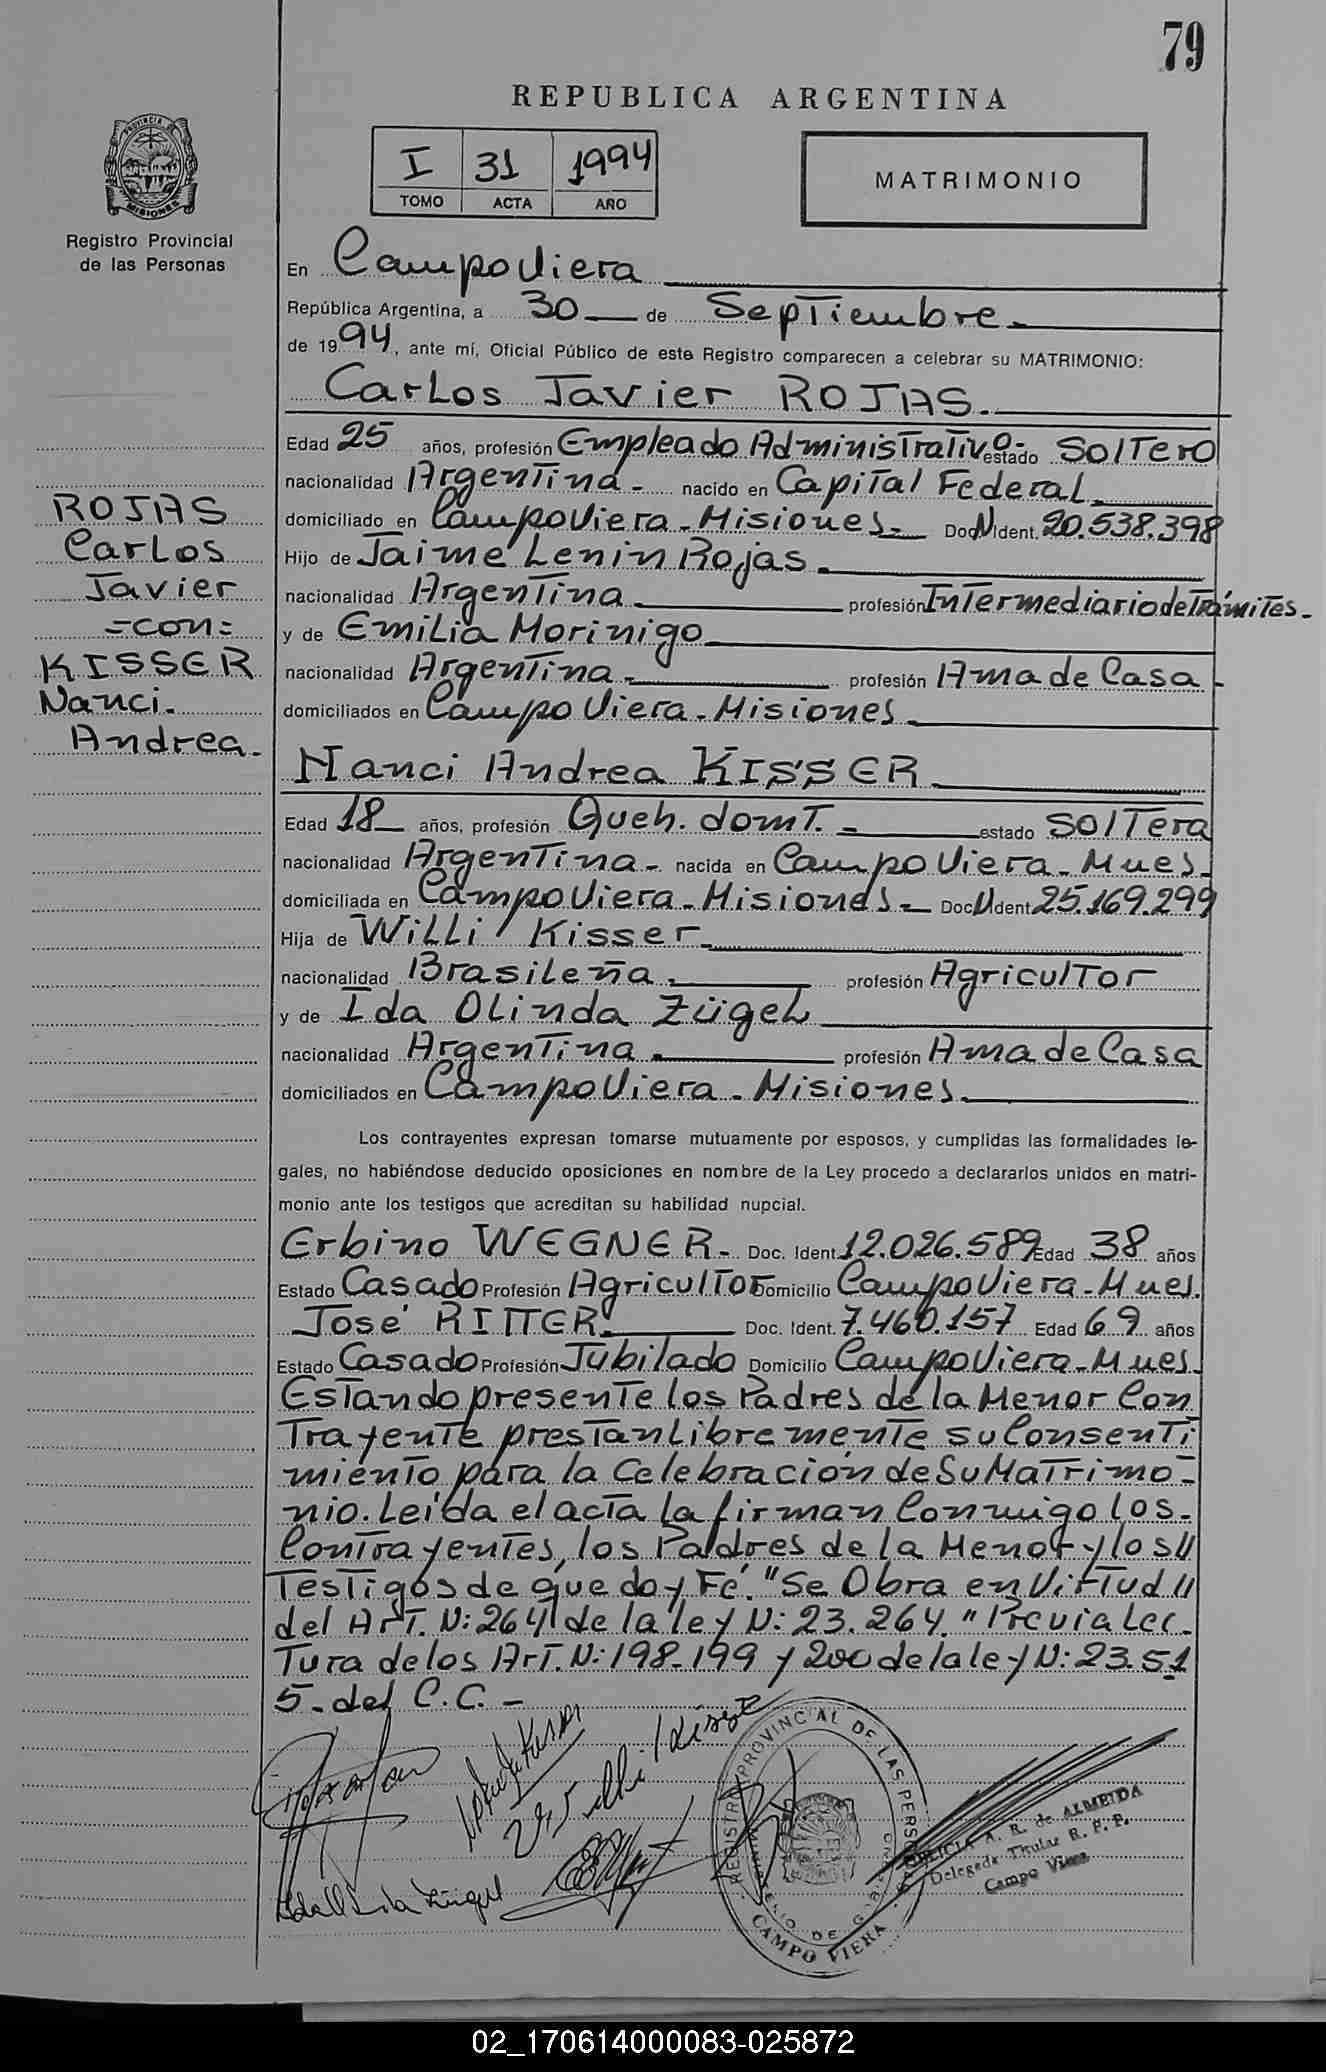 79
REPUBLICA ARGENTINA
I 31 1994
TOMO ACTA AÑO
MATRIMONIO
PROVINCIA DE
MISIONES
Registro Provincial
de las Personas
En Campo Viera
República Argentina, a 30 de Septiembre.
de 1994, ante mí, Oficial Público de este Registro comparecen a celebrar su MATRIMONIO:
Carlos Javier ROJAS.
Edad 25 años, profesión Empleado Administrativo.- estado Soltero
nacionalidad Argentina.- nacido en Capital Federal.
domiciliado en Campo Viera - Misiones.- Doc N Ident. 20.538.398
Hijo de Jaime Lenin Rojas.
nacionalidad Argentina profesión Intermediario de Trámites.-
y de Emilia Morinigo
nacionalidad Argentina.- profesión Ama de Casa.-
domiciliados en Campo Viera - Misiones.
ROJAS
Carlos
Javier
=con=
KISSER
Nanci.
Andrea.
Nanci Andrea KISSER
Edad 18 años, profesión Queh. domt.- estado Soltera
nacionalidad Argentina.- nacida en Campo Viera - Mnes.
domiciliada en Campo Viera - Misiones.- Doc N Ident 25.169.299
Hija de Willi Kisser.
nacionalidad Brasileña. profesión Agricultor
y de Ida Olinda Zügel
nacionalidad Argentina. profesión Ama de Casa
domiciliados en Campo Viera - Misiones.
Los contrayentes expresan tomarse mutuamente por esposos, y cumplidas las formalidades le-
gales, no habiéndose deducido oposiciones en nombre de la Ley procedo a declararlos unidos en matri-
monio ante los testigos que acreditan su habilidad nupcial.
Erbino WEGNER.- Doc. Ident. 12.026.589 Edad 38 años
Estado Casado Profesión Agricultor Domicilio Campo Viera - Mnes.
José RITTER. Doc. Ident. 7.460.157 Edad 69 años
Estado Casado Profesión Jubilado Domicilio Campo Viera - Mnes.
Estando presente los Padres de la Menor Con
trayente prestan libremente su Consenti
miento para la Celebración de Su Matrimo-
nio. Leída el acta la firman Conmigo los.
Contrayentes, los Padres de la Menor y los //
Testigos de que doy Fé. "Se Obra en Virtud //
del Art. N: 264 de la ley N: 23.264." Previa Lec-
tura de los Art. N: 198-199 y 200 de la ley N: 23.51
5.- del C.C.-
REGISTRO PROVINCIAL DE LAS PERSONAS
CAMPO VIERA
A. R. de ALMEIDA
Delegada Titular R. P. P.
Campo Viera
02_170614000083-025872